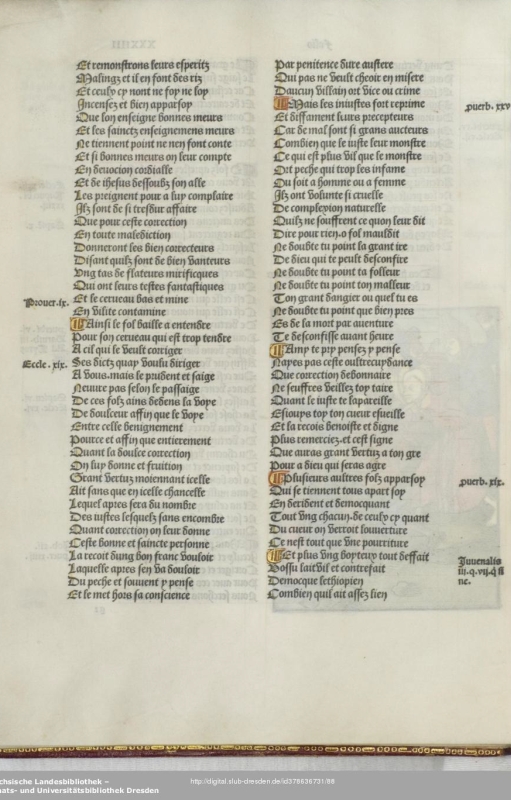 Et remonstrons leurs esperitz
Malingz et il en font des ritz
Et ceulx cy nont ne foy ne loy
Incensez et bien apparsoy
Que lon enseigne bonnes meurs
Et les sainctz enseignemens meurs
Ne tiennent point ne nen font conte
Et si bonnes meurs on leur compte
En devocion cordialle
Et de ihesus dessoubz son alle
Les preignent pour a luy complaire
Ilz sont de si tresdur affaire
Que pour ceste correction
En toute malediction
Donneront les bien correcteurs
Disant quilz sont de bien vanteurs
Ung tas de flateurs mirificques
Qui ont leurs testes fantastiques
Prouer. ix. Et le cerveau bas et mine
En vilite contamine
Ainsi le fol baille a entendre
Pour son cerveau qui est trop tendre
A cil qui le veult corriger
Eccle. xix. Ses dictz quay voulu diriger
A vous. mais le prudent et saige
Neuure pas selon le passaige
De ces folz ains dedens la voye
De doulceur affin que le voye
Entre celle benignement
Pource et affin que entierement
Quant la doulce correction
On luy donne et fruition
Grant vertuz moiennant icelle
Ait sans que en icelle chancelle
Lequel apres sera du nombre
Des iustes lesquelz sans encombre
Quant correction on leur donne
Ceste bonne et saincte personne
La recoit dung bon franc vouloir
Laquelle apres sen va douloir
Du peche et souuent y pense
Et le met hors sa conscience
Par penitence dure austere
Qui pas ne veult cheoir en misere
Daucun villain ort vice ou crime
Mais les iniustes fort reprime puerb. xxv
Et diffament leurs precepteurs
Car de mal sont si grans aucteurs
Combien que le iuste leur monstre
Ce qui est plus vil que le monstre
Dit peche qui trop les infame
Ou soit a homme ou a femme
Ilz ont volunte si cruelle
De complexion naturelle
Quilz ne souffrent ce quon leur dit
Dire pour rien. o fol mauldit
Ne doubte tu point la grant ire
De dieu qui te peult desconfire
Ne doubte tu point ta folleur
Ne doubte tu point ton malleur
Ton grant dangier ou quel tu es
Ne doubte tu point que bien pres
Es de la mort par auenture
Te desconfisse auant heure
Amy te pry pensez y pense
Nayes pas ceste oultrecuydance
Que correction debonnaire
Ne seuffres veillez toy taire
Quant le iuste te lapareille
Esiouys toy ton cueur esueille
Et la recois benoiste et digne
Plus remerciez. et cest signe
Que auras grant vertuz a ton gre
Pour a dieu qui seras agre
Plusieurs aultres folz apparsoy puerb. xix.
Qui se tiennent tous apart soy
En derident et democquant
Tout vng chacun. de culy cy quant
Du cueur on verroit louuerture
Ce nest tout que vne pourriture
Et plus vng boyteux tout deffait Juuenalis
Bossu lait vil et contrefait iii. q. vii. q si
Democque lethiopien ne.
Combien quil ait assez lien
http://digital.slub-dresden.de/id378636731/86
chsische Landesbibliothek –
aats- und Universitätsbibliothek Dresden